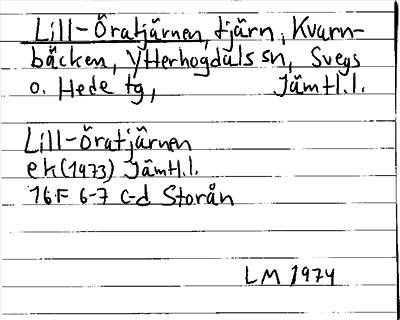 Lill-Öratjärnen, tjärn, Kvarn-
bäcken, Ytterhogdals sn, Svegs
o. Hede tg, Jämtl.l.
Lill-Öratjärnen
ek (1973) Jämtl.l.
16F 6-7 c-d Storån
LM 1974